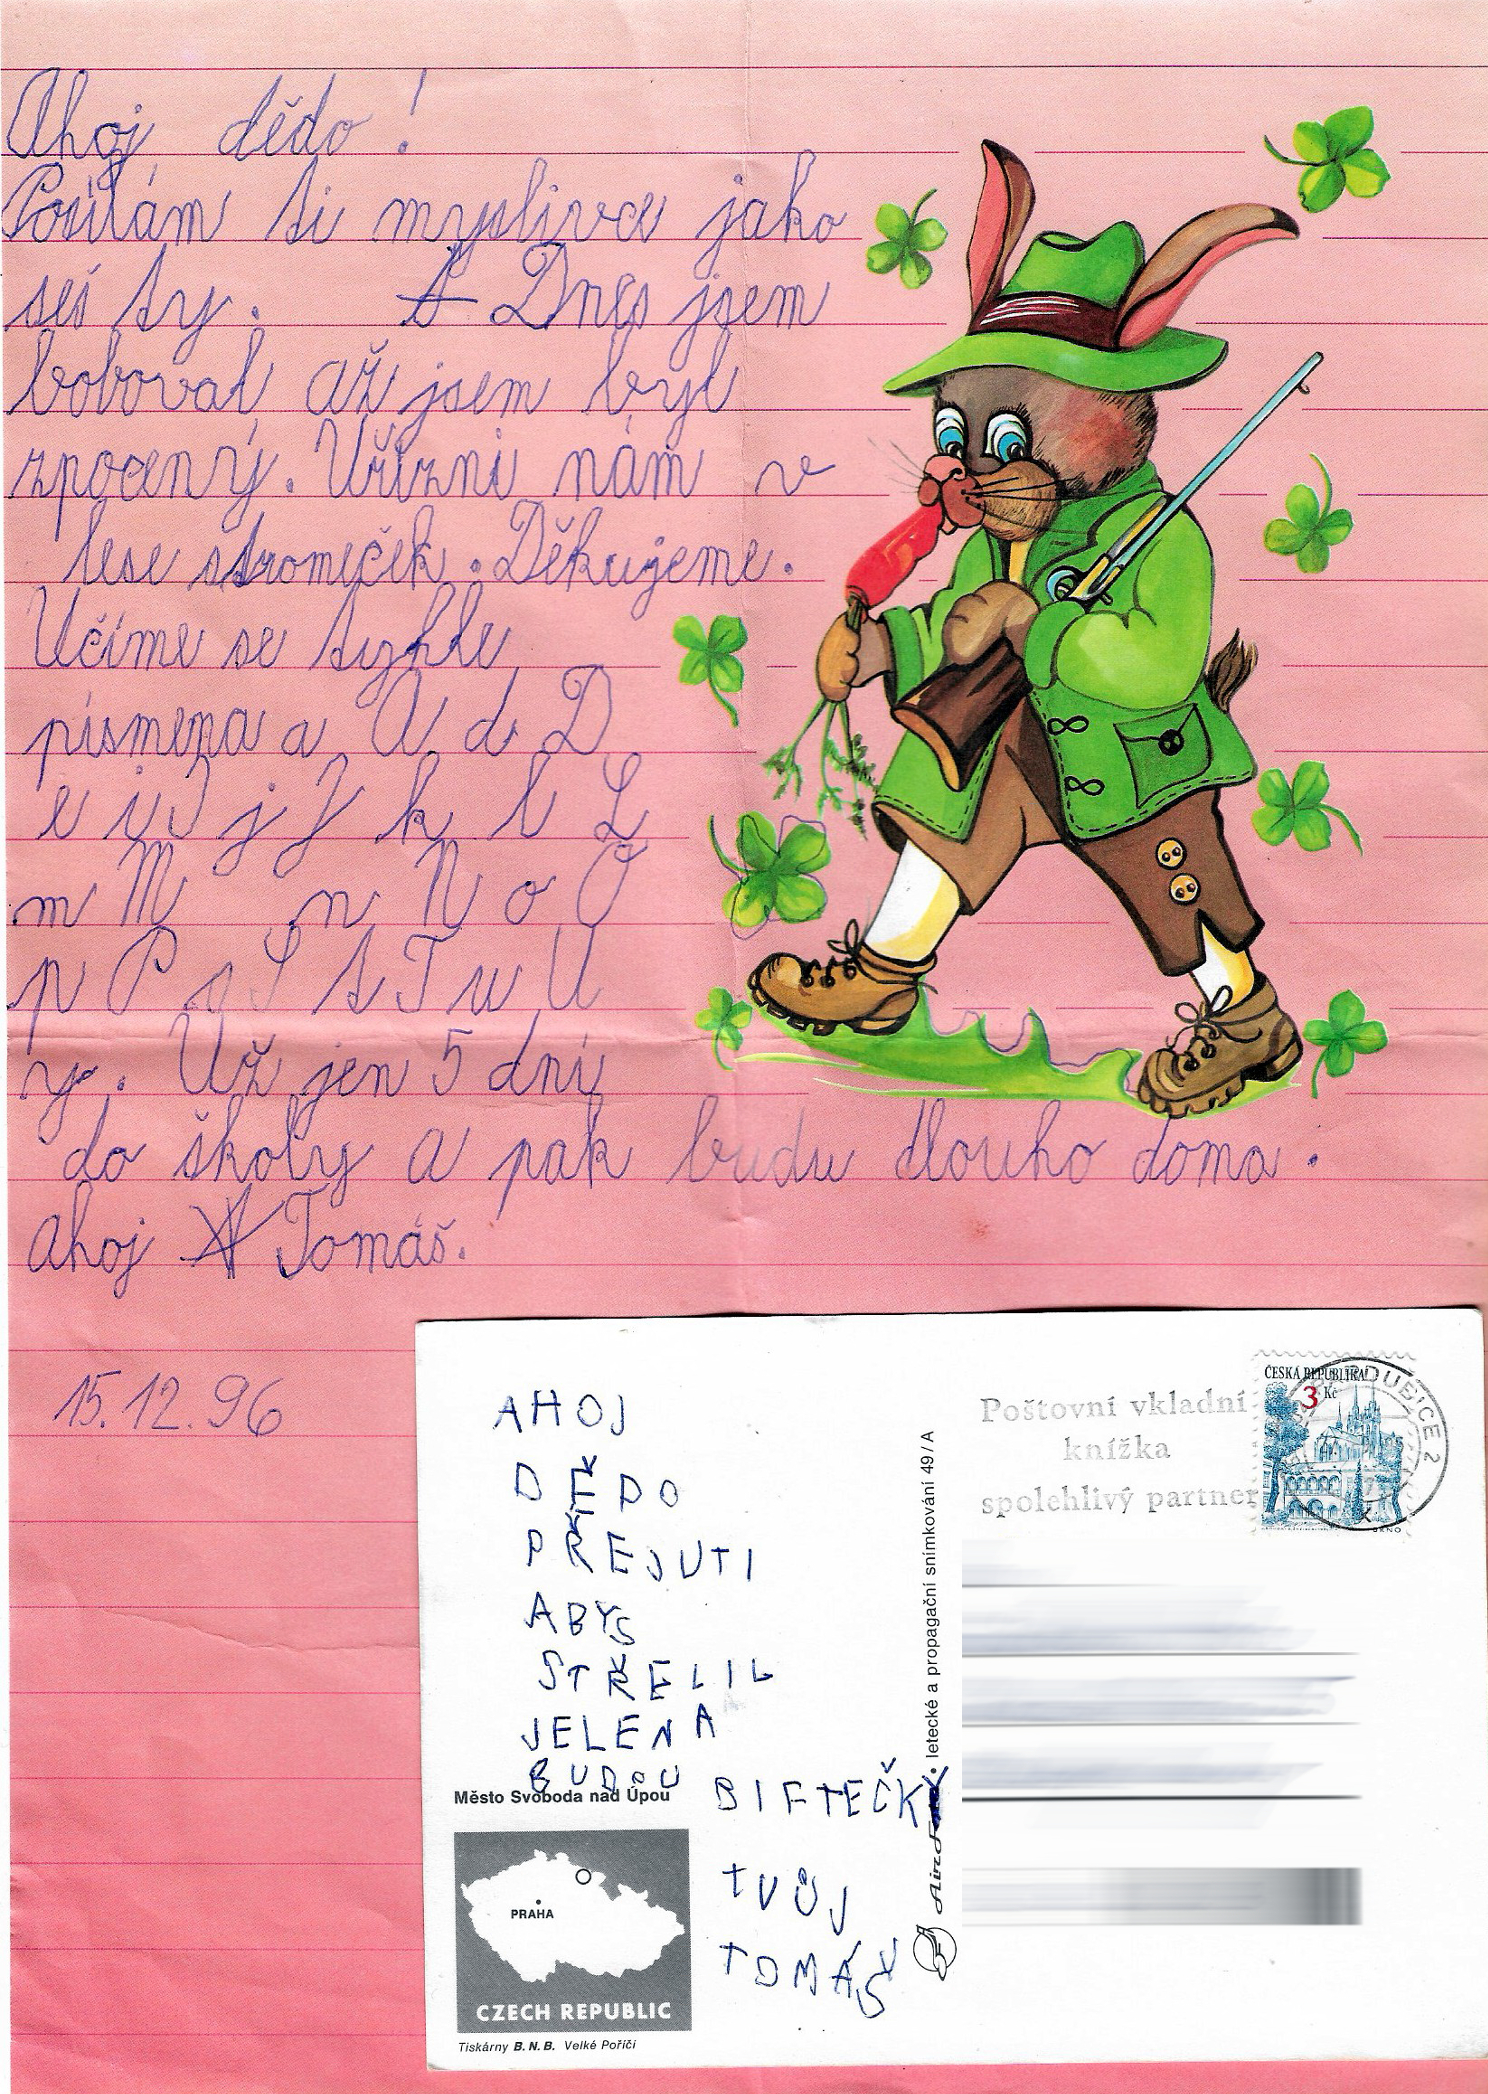 Ahoj dědo!
Posílám ti myslivce jako
seš ty. A Dnes jsem
boboval až jsem byl
zpocený. Uřízni nám v
lese stromeček. Děkujeme.
Učíme se tyhle
písmena a A d D
e i J j J k l L
m M n N o O
p P s S t T u U
y. Už jen 5 dní
do školy a pak budu dlouho doma.
ahoj A Tomáš.
15.12.96
AHOJ
DĚDO
PŘEJUTI
ABYS
STŘELIL
JELENA
BUDOU BIFTEČKY
TVŮJ
TOMÁŠ
Město Svoboda nad Úpou
PRAHA
CZECH REPUBLIC
Tiskárny B.N.B. Velké Poříčí
AirFoto • letecké a propagační snímkování 49/A
Poštovní vkladní
knížka
spolehlivý partner
ČESKÁ REPUBLIKA
3 Kč
BRNO
PARDUBICE 2